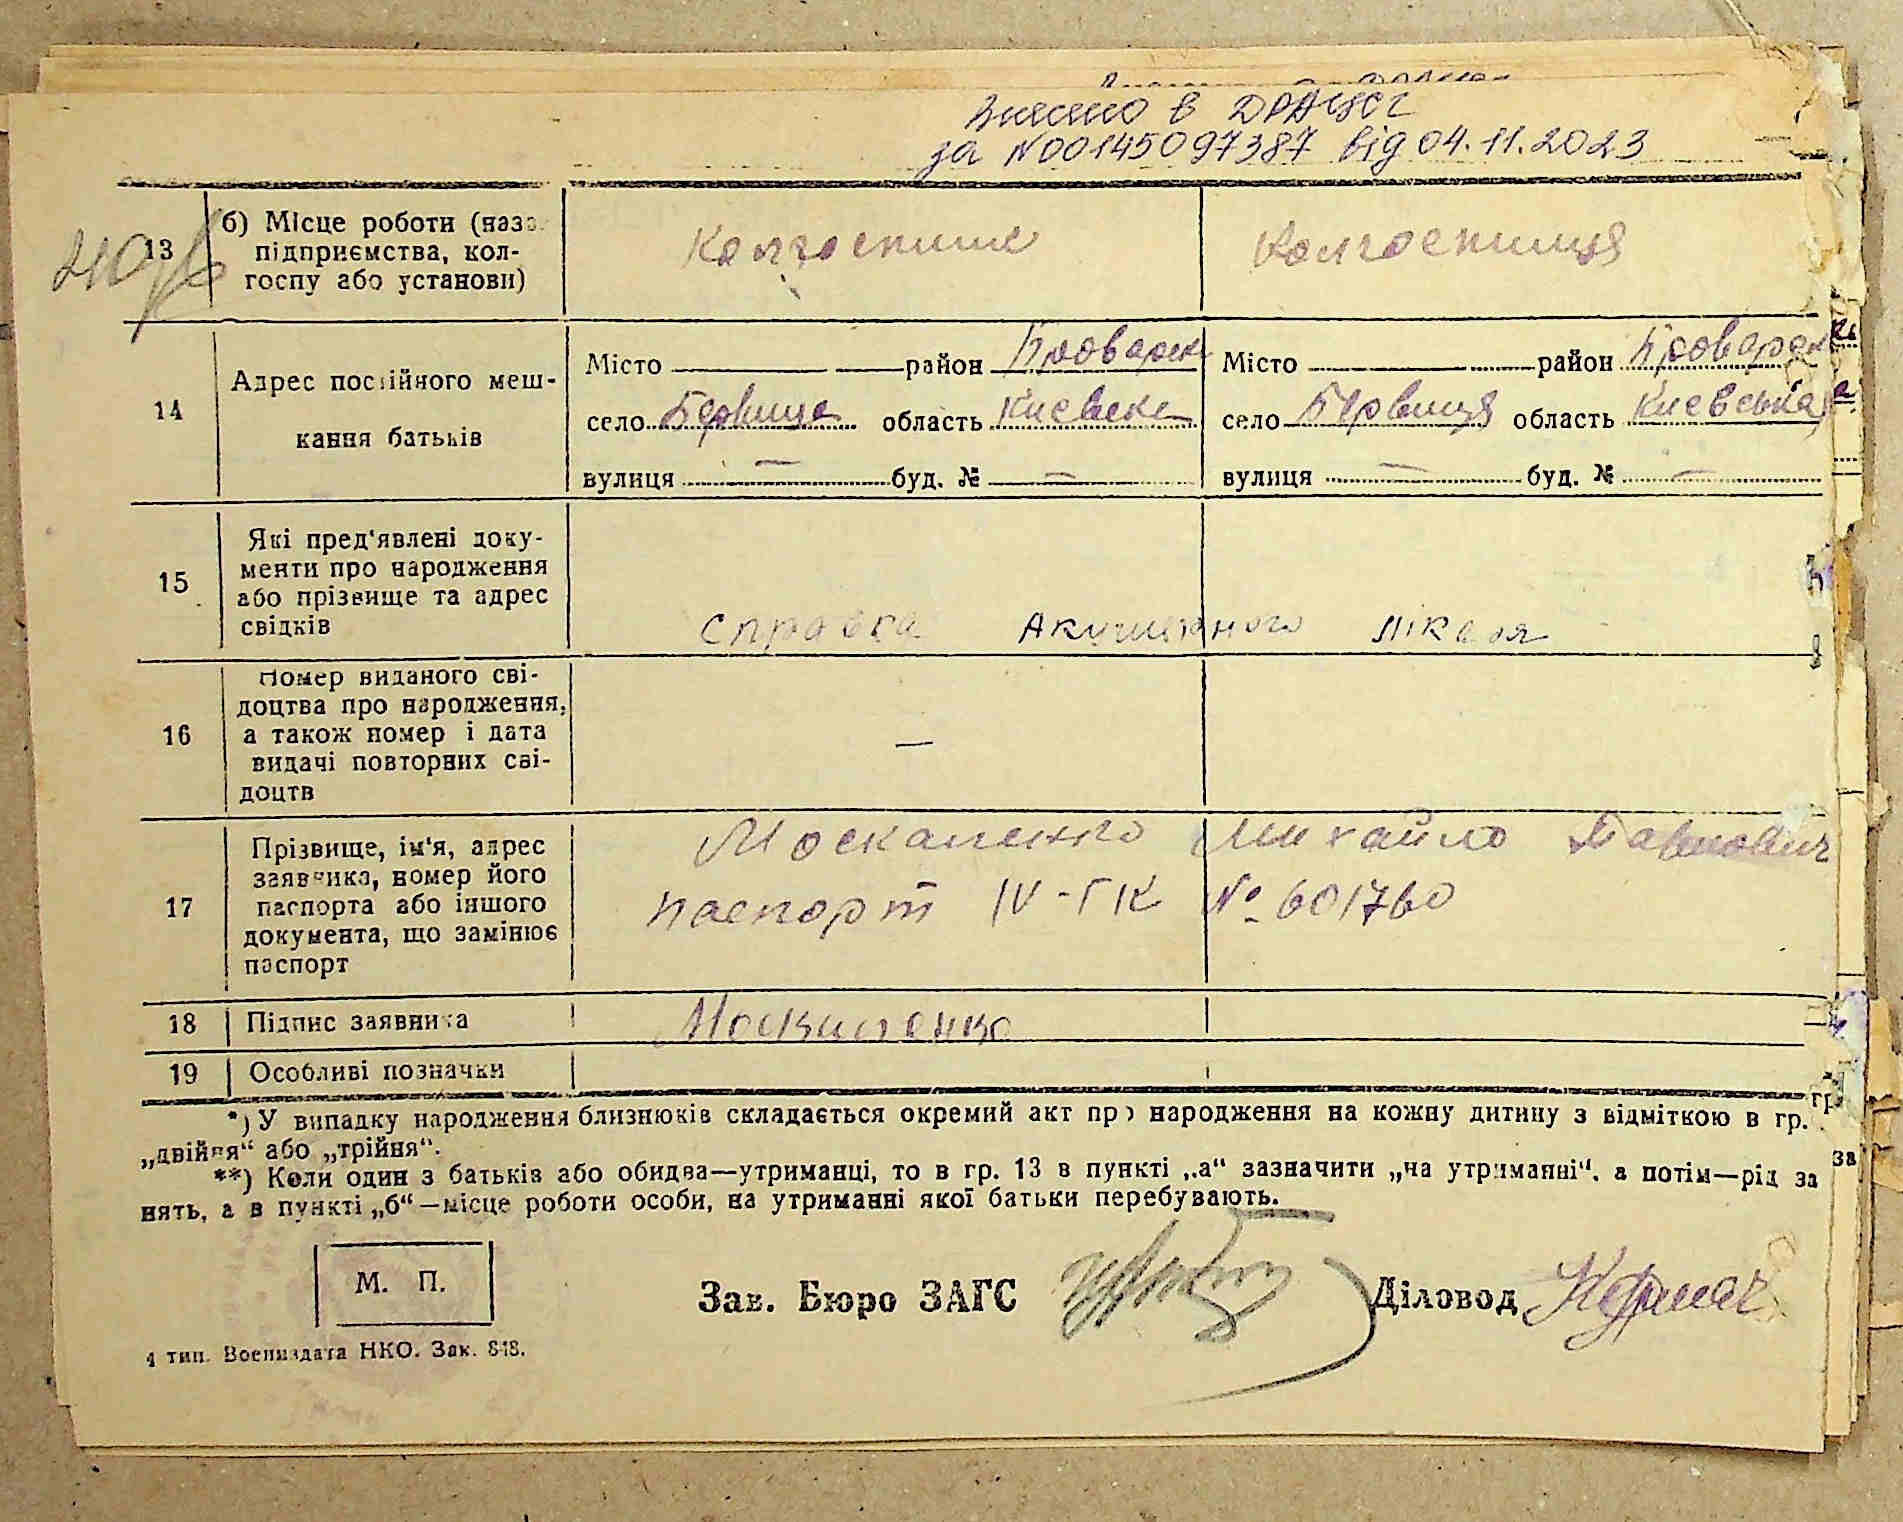 Внесено в ДРАЦСГ
за №00145097387 від 04.11.2023
13 б) Місце роботи (назв
підприємства, кол-
госпу або установи)
Колгоспник Колгоспниця
14 Адрес постійного меш-
кання батьків
Місто район Броварськ Місто район Броварськ
село Бервиця область Киевська село Бервиця область Киевська
вулиця — буд. № — вулиця — буд. № —
15 Які пред'явлені доку-
менти про народження
або прізвище та адрес
свідків
справка Акушерного лікаря
16 Номер виданого сві-
доцтва про народження,
а також номер і дата
видачі повторних сві-
доцтв
—
17 Прізвище, ім'я, адрес
заявника, номер його
паспорта або іншого
документа, що замінює
паспорт
Москаленко Михайло Павлович
паспорт IV-ГК № 601760
18 Підпис заявника Москаленко
19 Особливі позначки
*) У випадку народження близнюків складається окремий акт про народження на кожну дитину з відміткою в гр.
„двійня“ або „трійня“.
**) Коли один з батьків або обидва—утриманці, то в гр. 13 в пункті „а“ зазначити „на утриманні“, а потім—рід за
нять, а в пункті „б“—місце роботи особи, на утриманні якої батьки перебувають.
М. П.
Зав. Бюро ЗАГС Діловод
4 тип. Воениздата НКО. Зак. 848.